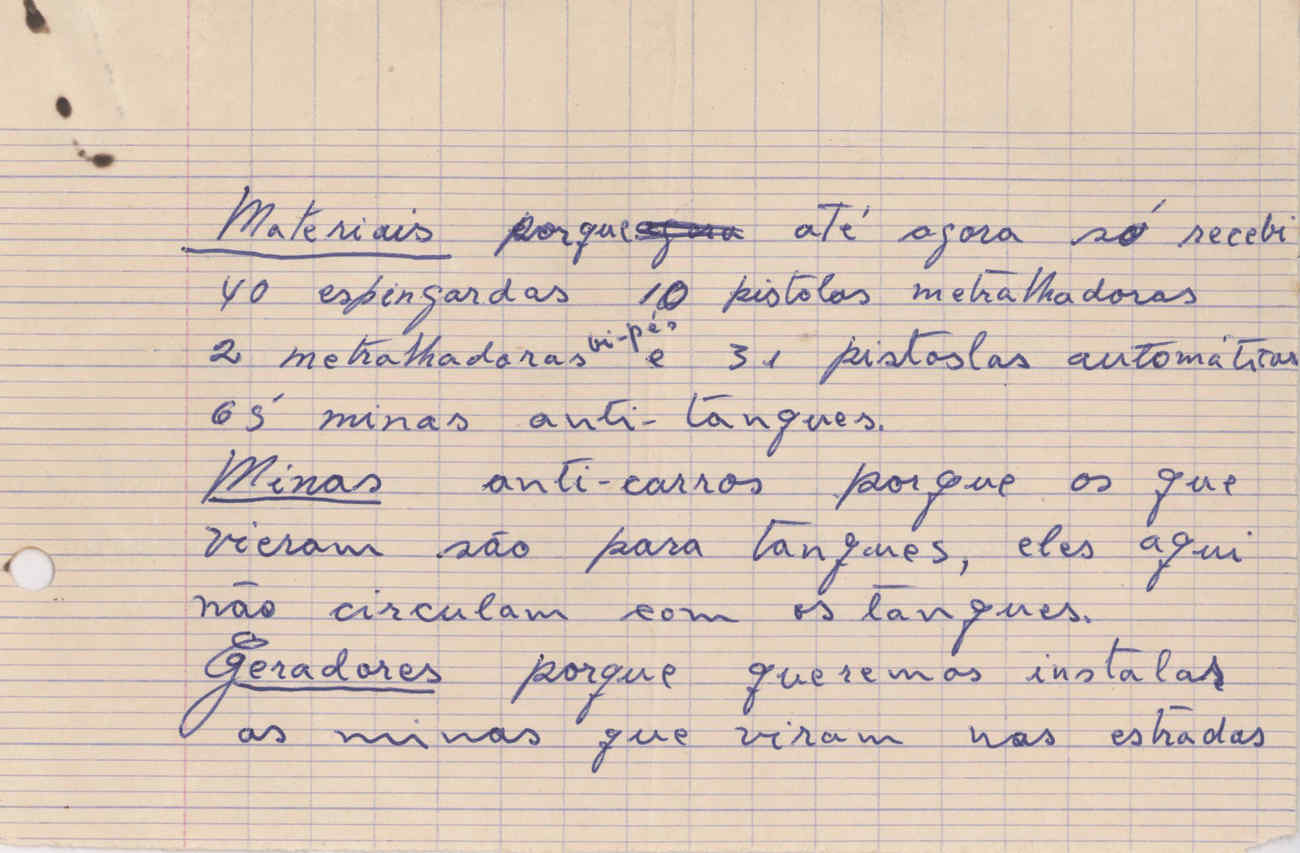 Materiais porque até agora só recebi
40 espingardas 10 pistolas metralhadoras
2 metralhadoras bi-pés e 31 pistoslas automáticas
65 minas anti-tanques.
Minas anti-carros porque os que
vieram são para tanques, eles aqui
não circulam com os tanques.
Geradores porque queremos instalar
as minas que viram nas estradas